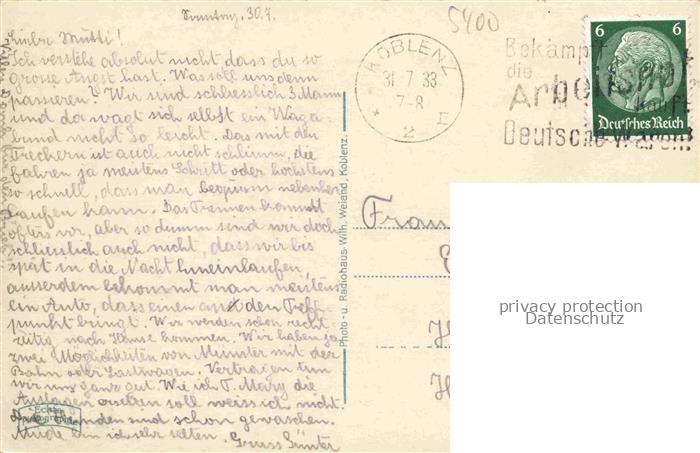 Sonntag, 30.7.
5400
Liebe Mutti!
Ich verstehe absolut nicht dass du so
grosse Angst hast. Was soll uns denn
passieren? Wir sind schliesslich 3 Mann
und da wagt sich selbst ein Waga-
bund nicht so leicht. Das mit den
Treckern ist auch nicht schlimm, die
fahren ja meistens Schritt oder höchstens
so schnell, dass man bequem nebenher
laufen kann. Das Trennen kommt
öfters vor, aber so dumm sind wir doch
schliesslich auch nicht, dass wir bis
spät in die Nacht hineinlaufen,
ausserdem bekommt man meistens
ein Auto, dass einen an den Treff-
punkt bringt. Wir werden schon recht-
zeitig nach Hause kommen. Wir haben ja
zwei Möglichkeiten von Münster mit der
Bahn oder Lastwagen. Vertragen tun
wir uns ganz gut. Wie ich T. Mary die
Auslagen ersetzen soll weiss ich nicht.
sind schon gewaschen.
Müde bin ich sehr selten. Gruss Günter
Echte
Photographie
Photo- u. Radiohaus Wilh. Weiand, Koblenz
KOBLENZ
31.7.33
7-8
* 2 II
Bekämpft
die
Arbeitsnot
kauft
Deutsche Waren!
6 6
Deutsches Reich
Frau
privacy protection
Datenschutz